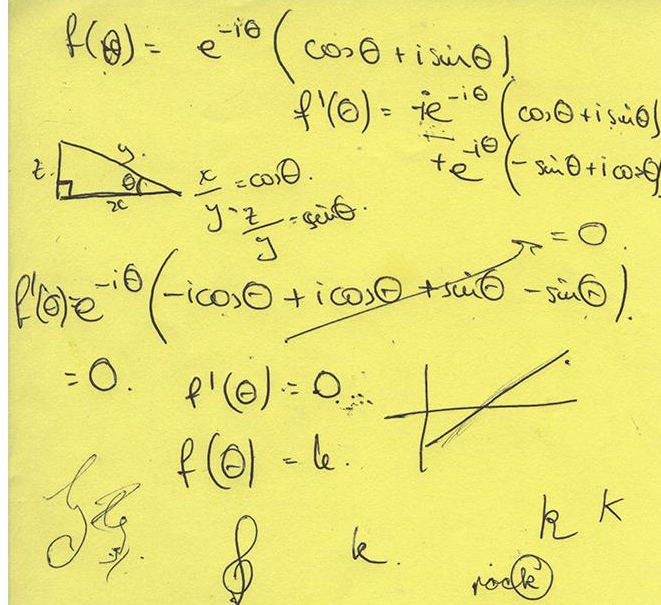 f(θ) = e^{-iθ} (cosθ + i sinθ)
f'(θ) = -ie^{-iθ} (cosθ + i sinθ)
+e^{-iθ} (-sinθ + i cosθ)
z y θ x
x/y = cosθ.
z/y = sinθ.
= 0.
f'(θ) = e^{-iθ} (-i cosθ + i cosθ + sinθ - sinθ).
= 0.
f'(θ) = 0
f(θ) = k.
k. k K
rock